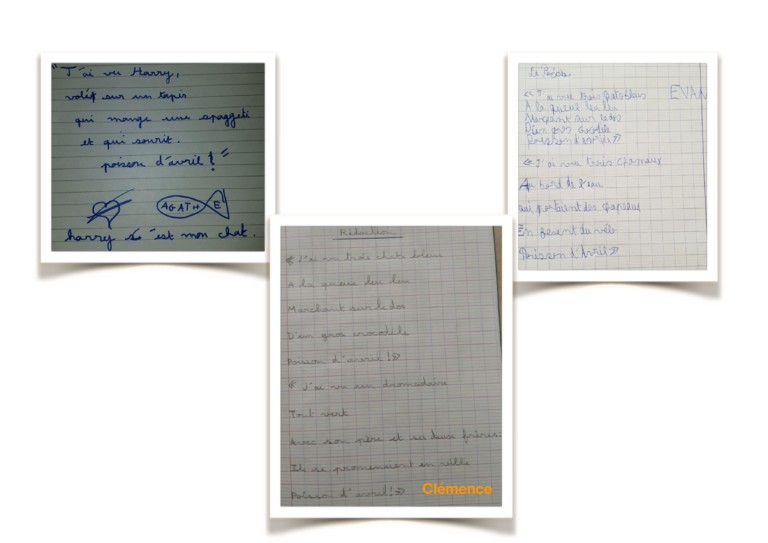 "J'ai vu Harry,
voléf sur un tapis
qui mange une spaggeti
et qui sourit.
poisson d'avril ! "
AGATH E
harry c'est mon chat.
EVAN
A la queue leu leu
Marchant sur le dos
D'un gros crocodile
Poisson d'avril »
« J'ai vu trois chameaux
Au bord de l'eau
qui portaient des chapeaux
En fesent du vélo
Poisson d'Avril »
Rédaction
« J'ai vu trois chats bleus
A la queue leu leu
Marchant sur le dos
D'un gros crocodile
Poisson d'avril ! »
« J'ai vu un dromadaire
Tout vert
Avec son père et ses deux frères.
Ils se promenaient en ville
Poisson d'avril ! »
Clémence